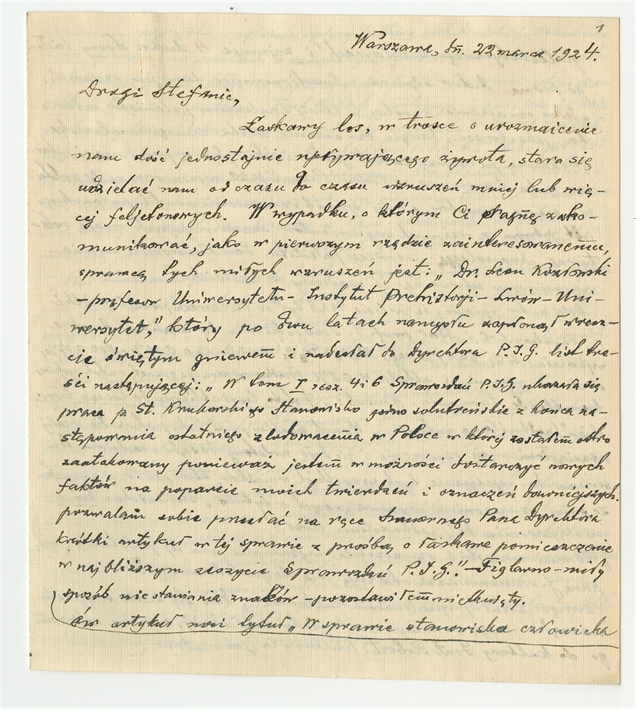 1
Warszawa, dń. 22 marca 1924.
Drogi Stefanie,
Łaskawy los, w trosce o urozmaicenie
nam dość jednostajnie upływającego żywota, stara się
udzielać nam od czasu do czasu wzruszeń mniej lub wię-
cej feljetonowych. W wypadku, o którym Ci pragnę zako-
munikować, jako w pierwszym rzędzie zainteresowanemu,
sprawcą tych miłych wzruszeń jest: „Dr. Leon Kozłowski
- profesor Uniwersytetu - Instytut Prehistorji - Lwów - Uni-
wersytet," który po dwu latach namysłu zapłonął wresz-
cie świętym gniewem i nadesłał do Dyrektora P.I.G. list tre-
ści następującej: „W tom I zesz. 4 i 6 Sprawozdań P.I.G. ukazała się
praca p. St. Krukowskiego Stanowisko solutrejskie z końca na-
stępowania ostatniego zlodowacenia w Polsce w której zostałem ostro
zaatakowany ponieważ jestem w możności dostarczyć nowych
faktów na poparcie moich twierdzeń i oznaczeń dawniejszych.
pozwalam sobie przesłać na ręce Szanownego Pana Dyrektora
krótki artykuł w tej sprawie z prośbą o łaskawe pomieszczenie
w najbliższym zeszycie Sprawozdań P.I.G." - Figlarno-miły
sposób niestawiania znaków - pozostawiłem nietknięty.
Ów artykuł nosi tytuł „W sprawie stanowiska człowieka